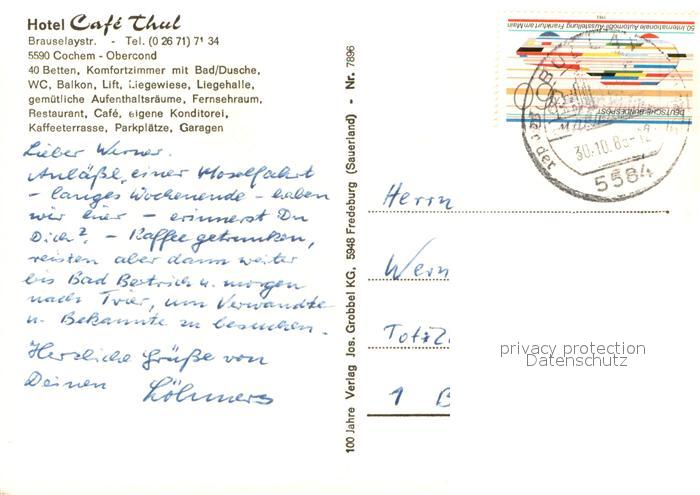 Hotel Café Thul
Brauselaystr. - Tel. (0 26 71) 71 34
5590 Cochem - Obercond
40 Betten, Komfortzimmer mit Bad/Dusche,
WC, Balkon, Lift, Liegewiese, Liegehalle,
gemütliche Aufenthaltsräume, Fernsehraum,
Restaurant, Café, eigene Konditorei,
Kaffeeterrasse, Parkplätze, Garagen
Lieber Werner.
Anläßl. einer Moselfahrt
- langes Wochenende - haben
wir hier - erinnerst Du
Dich? - Kaffee getrunken,
reisten aber dann weiter
bis Bad Bertrich u. morgen
nach Trier, um Verwandte
u. Bekannte zu besuchen.
Herzliche Grüße von
Deinen Löhmers
100 Jahre Verlag Jos. Grobbel KG, 5948 Fredeburg (Sauerland) - Nr. 7896
50. Internationale Automobil-Ausstellung Frankfurt am Main
DEUTSCHE BUNDESPOST
BULLAY
30.10.8
5584
Herrn
Wern
1 B
privacy protection
Datenschutz